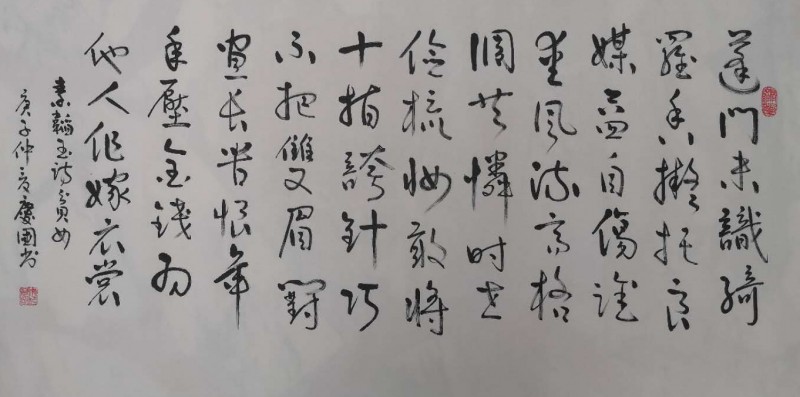 蓬門未識綺
羅香擬托良
媒益自傷誰
愛風流高格
調共憐時世
儉梳妝敢將
十指誇針巧
不把雙眉鬭
畫長苦恨年
年壓金綫為
他人作嫁衣裳
秦韜玉詩貧女
庚子仲夏慶國书